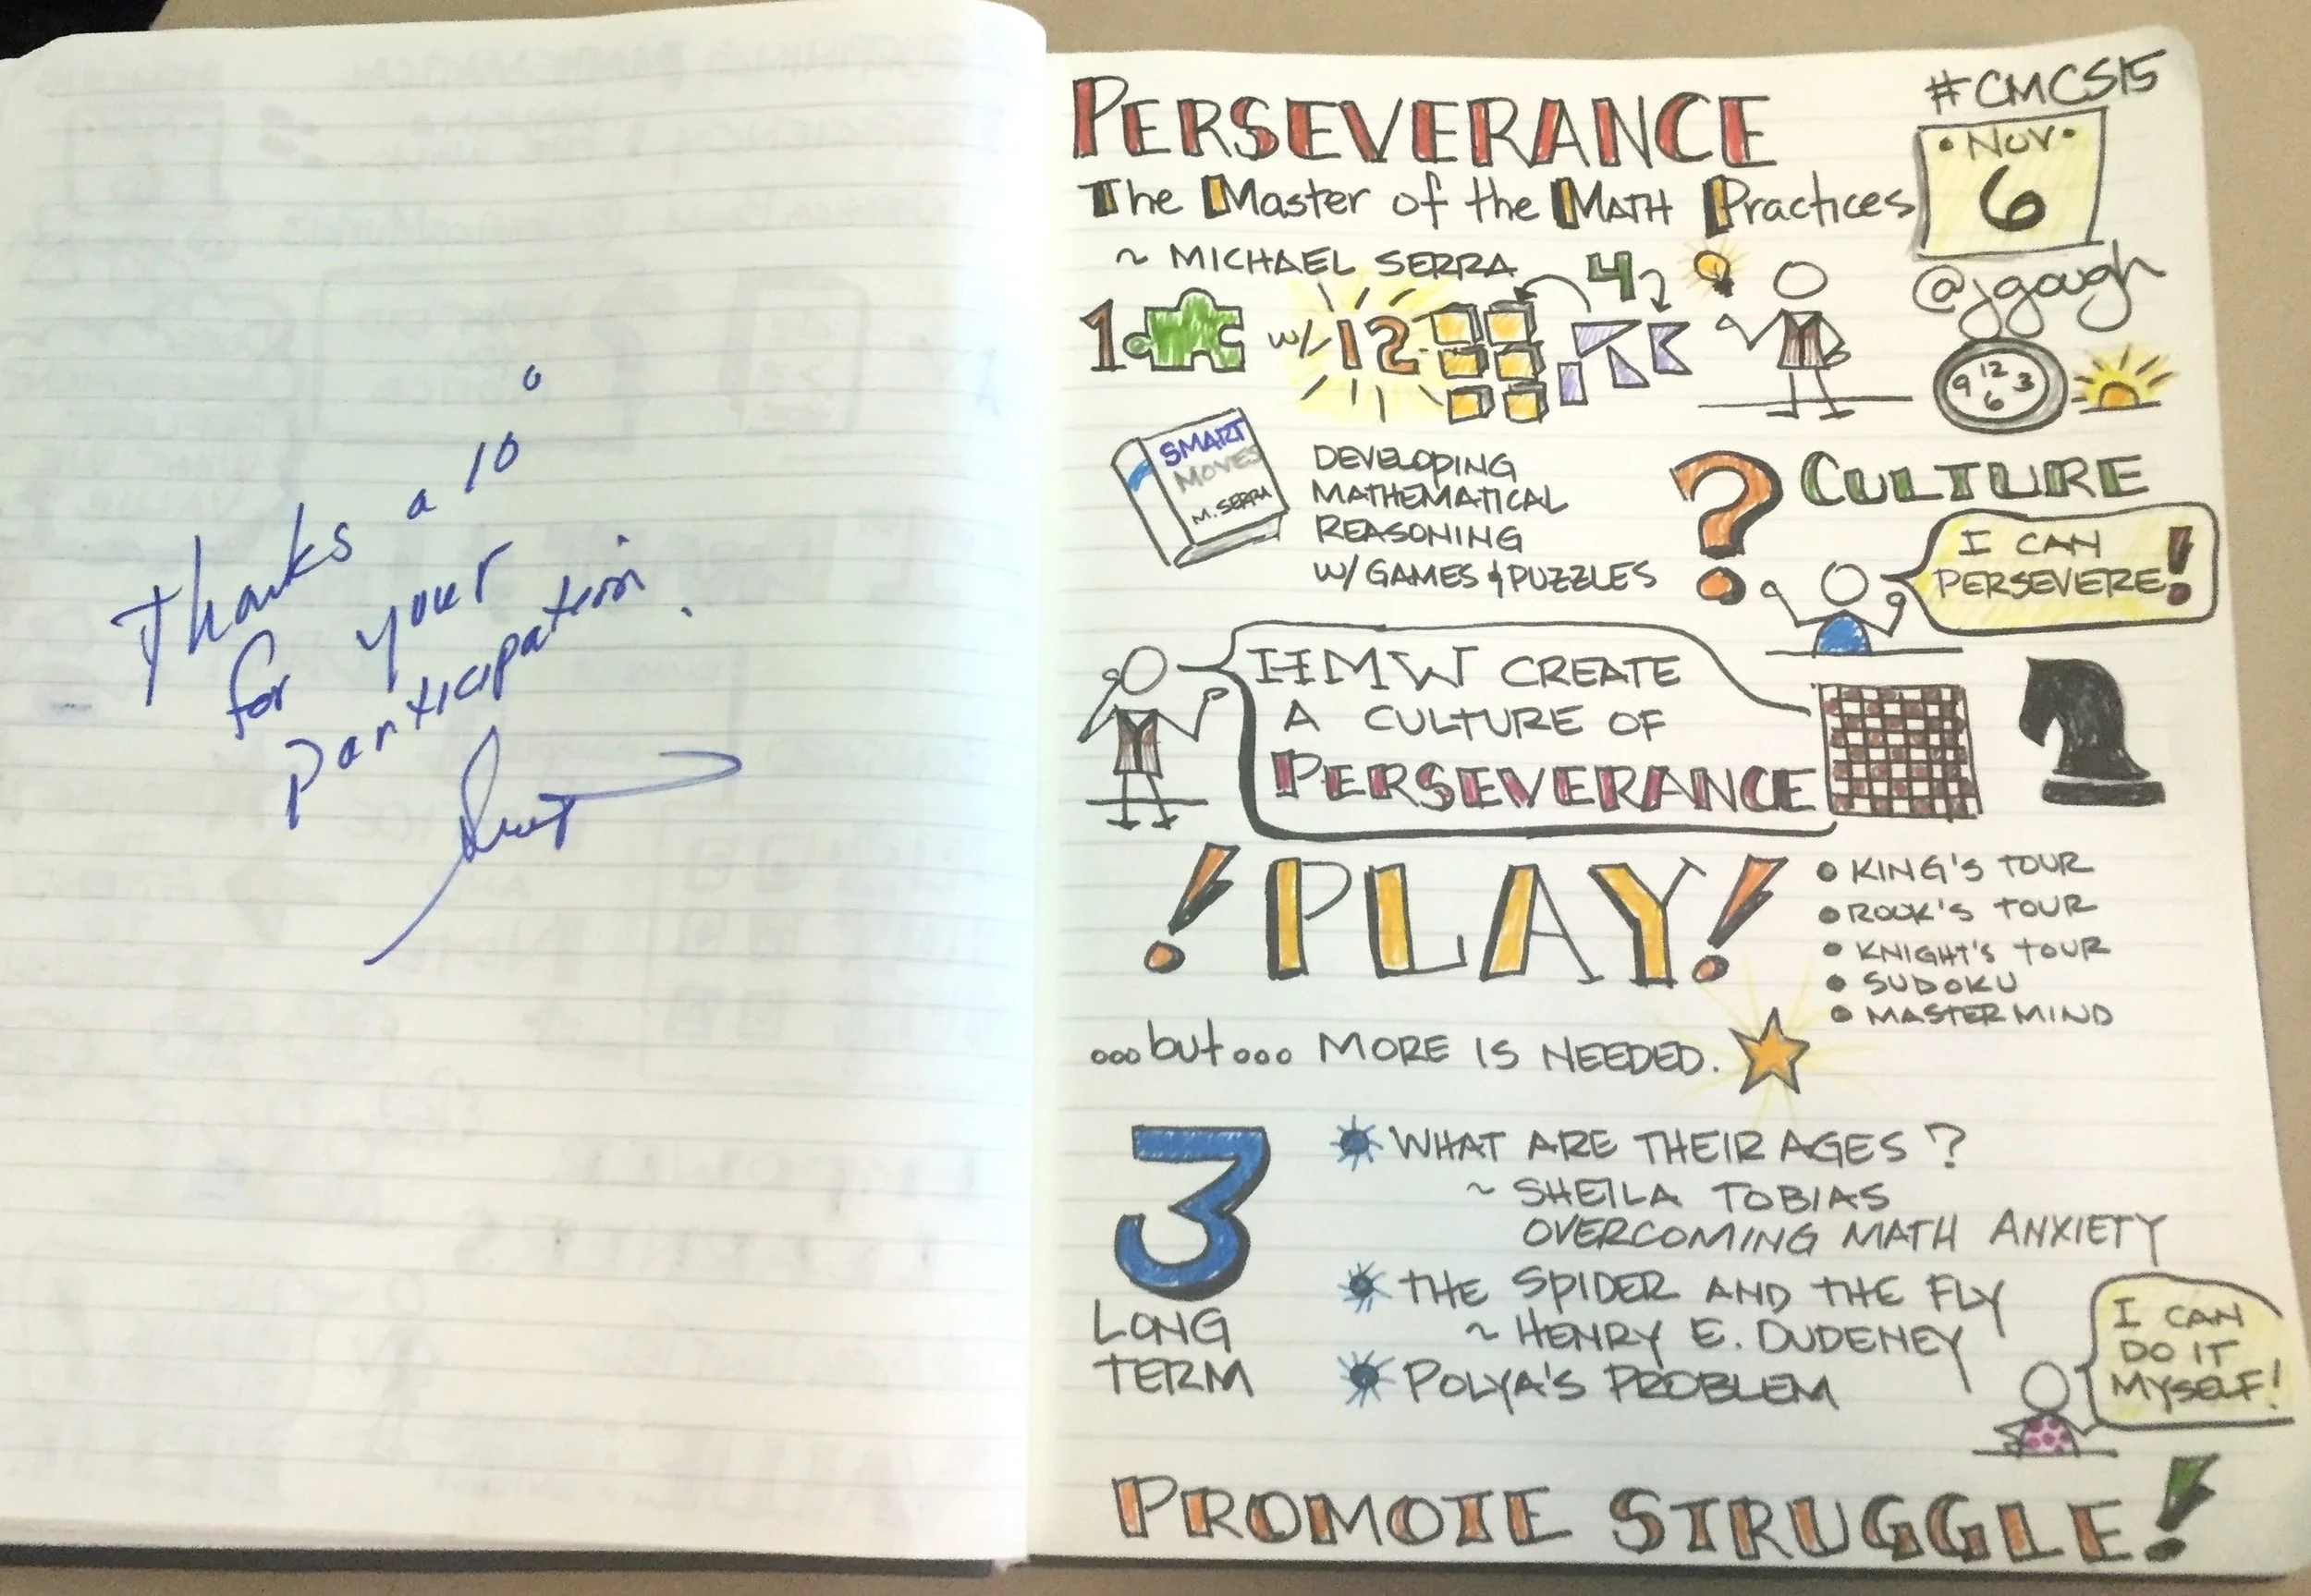 Thanks a 10
for your
participation.
PERSEVERANCE
#CMCS15
The Master of the MATH Practices
• NOV •
6
~ MICHAEL SERRA
@jgough
4
1 w/ 12
9 12 3
6
SMART
MOVES
M. SERRA
DEVELOPING
MATHEMATICAL
REASONING
W/ GAMES & PUZZLES
? CULTURE
I CAN
PERSEVERE!
HMW CREATE
A CULTURE OF
PERSEVERANCE
! PLAY!
• KING'S TOUR
• ROOK'S TOUR
• KNIGHT'S TOUR
• SUDOKU
• MASTERMIND
...but... MORE IS NEEDED.
3
LONG
TERM
WHAT ARE THEIR AGES?
~ SHEILA TOBIAS
OVERCOMING MATH ANXIETY
THE SPIDER AND THE FLY
~ HENRY E. DUDENEY
POLYA'S PROBLEM
I CAN
DO IT
MYSELF!
PROMOTE STRUGGLE!